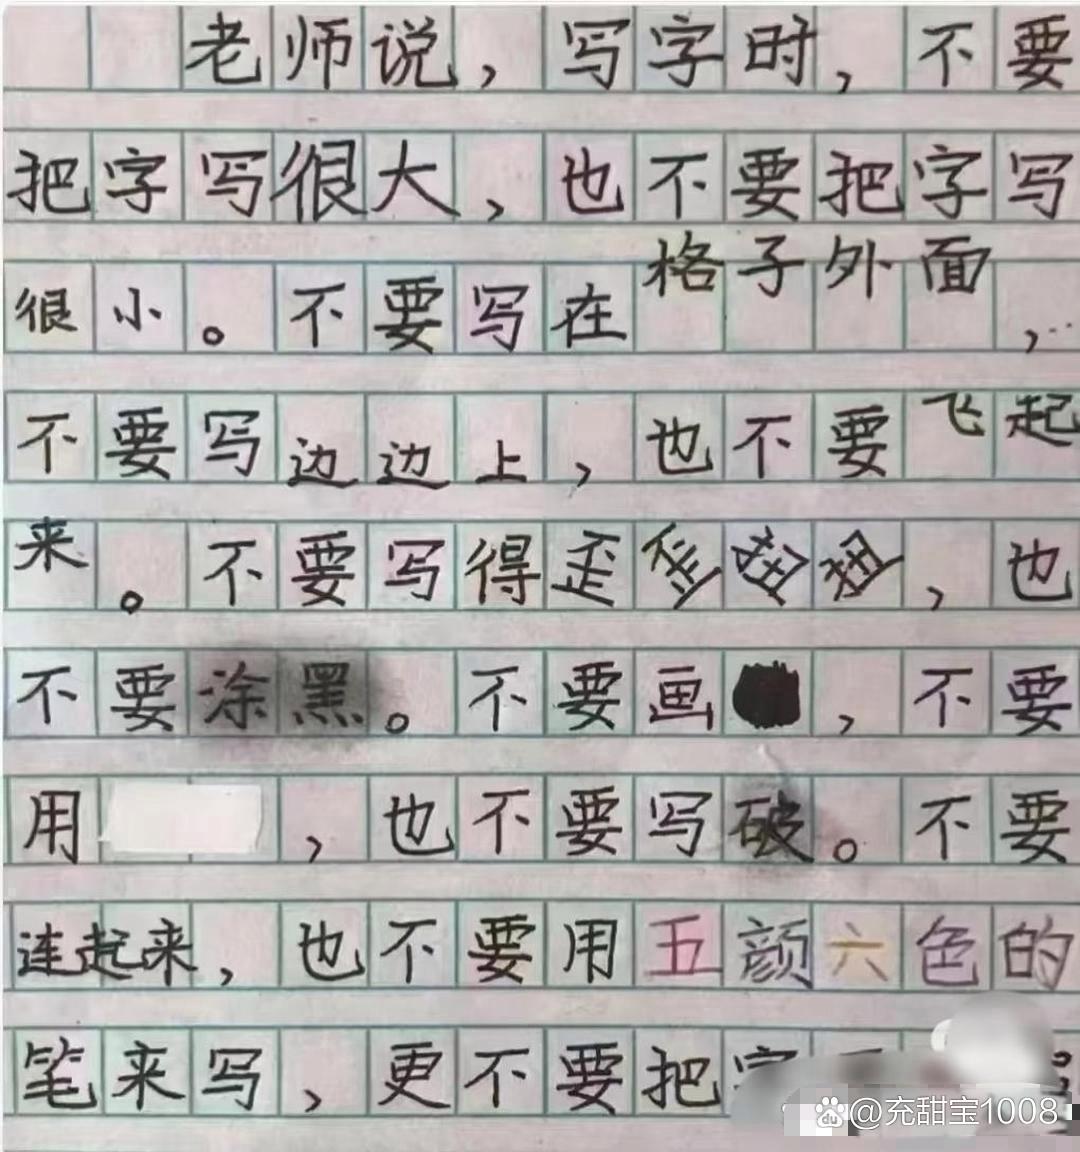 老师说，写字时，不要
把字写很大，也不要把字写
很小。不要写在格子外面，
不要写边边上，也不要飞起
来。不要写得歪歪扭扭，也
不要涂黑。不要画，不要
用，也不要写破。不要
连起来，也不要用五颜六色的
笔来写，更不要把字
du @充甜宝1008